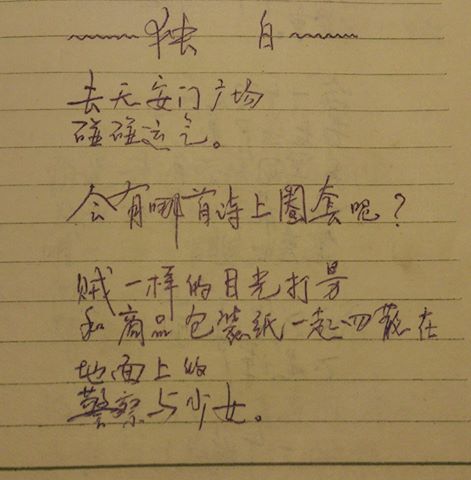 独 白
去天安门广场
碰碰运气。
会有哪首诗上圈套呢？
贼一样的目光打量
和商品包装纸一起四散在
地面上的
警察与少女。